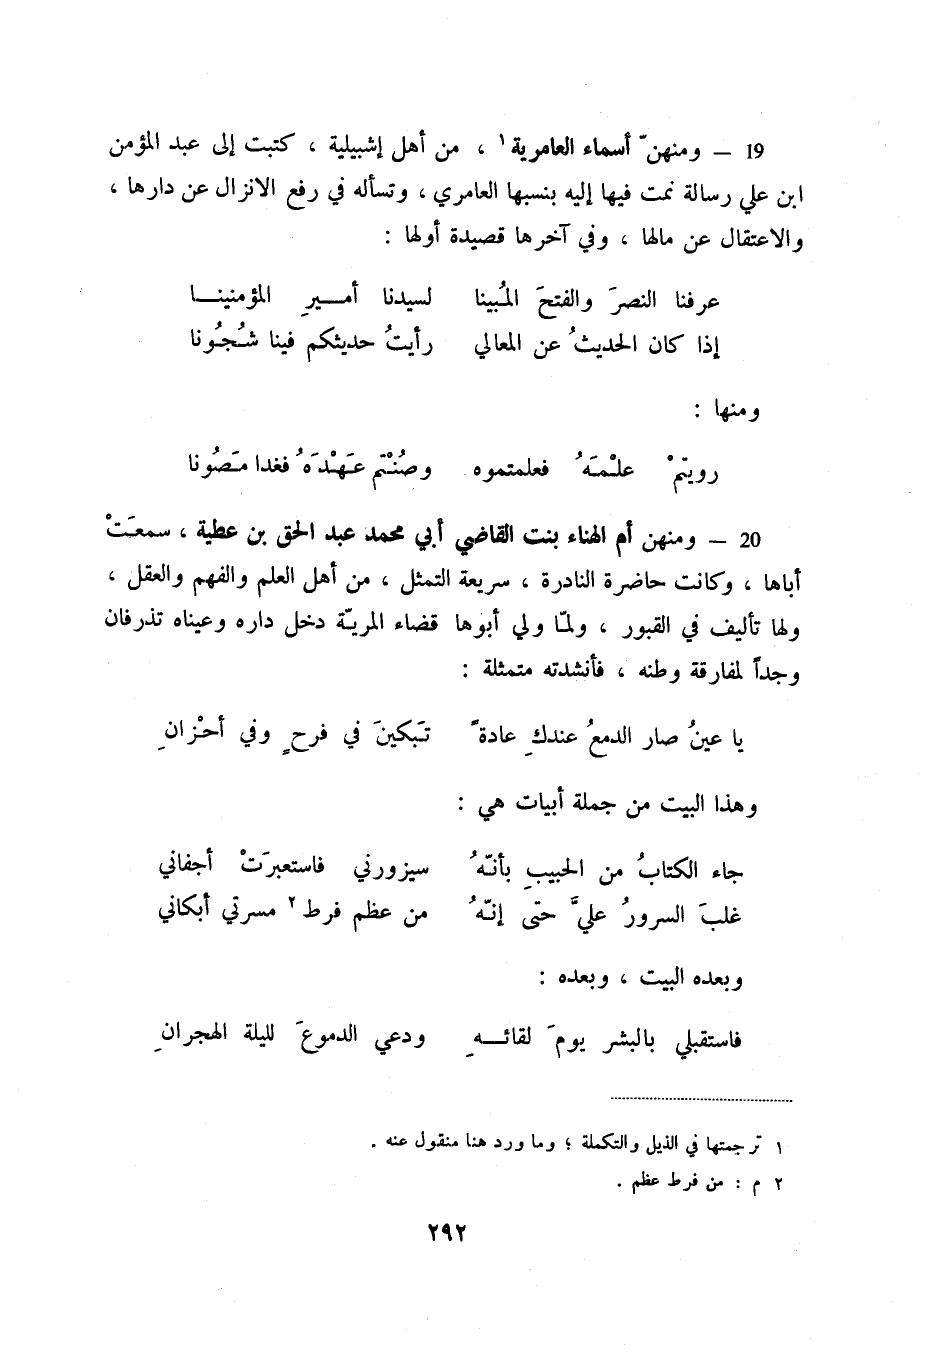 19 – ومنهنّ أسماء العامرية ١ ، من أهل إشبيلية ، كتبت إلى عبد المؤمن
ابن علي رسالة نمت فيها إليه بنسبها العامري ، وتسأله في رفع الانزال عن دارها ،
والاعتقال عن مالها ، وفي آخرها قصيدة أولها :
عرفنا النصرَ والفتحَ المُبينا لسيدنا أمـــيرِ المؤمنينــا
إذا كان الحديثُ عن المعالي رأيتُ حديثكم فينا شُجُونا
ومنها :
رويتمْ علْمَهُ فعلمتموه وصُنْتم عَهْدَهُ فغدا مَصُونا
20 – ومنهن أم الهناء بنت القاضي أبي محمد عبد الحق بن عطية ، سمعَتْ
أباها ، وكانت حاضرة النادرة ، سريعة التمثل ، من أهل العلم والفهم والعقل ،
ولها تأليف في القبور ، ولمّا ولي أبوها قضاء المريّة دخل داره وعيناه تذرفان
وجداً لمفارقة وطنه ، فأنشدته متمثلة :
يا عينُ صار الدمعُ عندكِ عادةً تَبكينَ في فرحٍ وفي أحْزانِ
وهذا البيت من جملة أبيات هي :
جاء الكتابُ من الحبيبِ بأنّهُ سيزورني فاستعبرَتْ أجفاني
غلبَ السرورُ عليَّ حتى إنّهُ من عظم فرط ٢ مسرتي أبكاني
وبعده البيت ، وبعده :
فاستقبلي بالبشر يومَ لقائــهِ ودعي الدموعَ لليلة الهجرانِ
١ ترجمتها في الذيل والتكملة ؛ وما ورد هنا منقول عنه .
٢ م : من فرط عظم .
٢٩٢